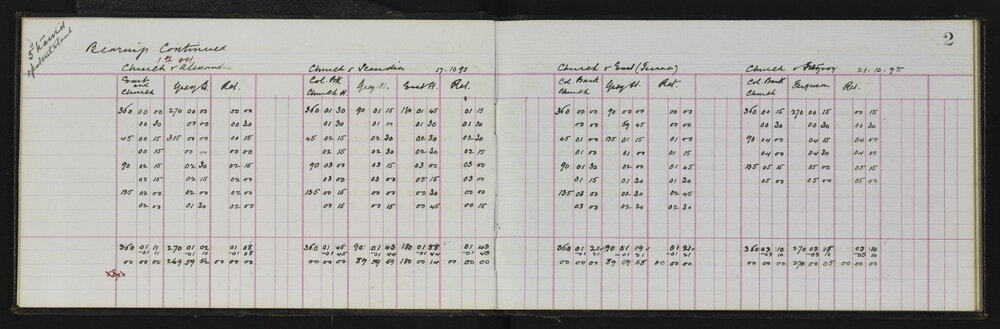 2
Bearings Continued
Church & Alexandra
East and Church Grey St. Ret.
360 00 00 270 00 00 00 00
00 30 00 00 00 30
45 00 15 315 00 00 00 15
00 15 00 00 00 00
90 02 15 02 30 02 15
02 15 02 15 02 00
135 02 00 02 00 02 00
02 00 01 30 02 00
360 01 11 270 01 02 01 08
-01 11 -01 10 -01 08
00 00 00 269 59 52 00 00 00
Church & Scandia 17.10.95
Col. Bk Church St. Grey St. East St. Ret.
360 01 30 90 01 15 180 01 45 01 15
01 30 01 00 01 30 01 30
45 02 15 02 30 02 30 02 30
02 15 02 30 02 30 02 15
90 03 00 03 15 03 00 03 00
03 00 03 00 03 15 03 00
135 00 15 00 00 00 30 00 00
00 15 00 15 00 45 00 15
360 01 45 90 01 43 180 01 58 01 43
-01 45 -01 44 -01 44 -01 43
00 00 00 89 59 59 180 00 14 00 00 00
Church & East
Col. Bank Church Grey St. Ret.
360 00 00 90 00 00 00 00
00 00 59 45 00 00
45 01 00 135 01 15 01 00
01 00 01 00 01 15
90 01 30 02 00 01 45
01 15 01 30 01 30
135 03 00 02 30 02 45
03 00 02 30 02 30
360 01 21 90 01 19 01 21
-01 21 -01 21 -01 21
00 00 00 89 59 58 00 00 00
Church & Fitzroy 21.10.95
Col. Bank Church Ferguson Ret.
360 00 15 270 00 15 00 15
00 30 00 30 00 30
90 04 00 04 15 04 00
04 00 04 30 04 00
135 05 15 05 15 05 15
05 00 05 00 05 00
360 03 10 270 03 15 03 10
-03 10 -03 10
00 00 00 270 00 05 00 00 00